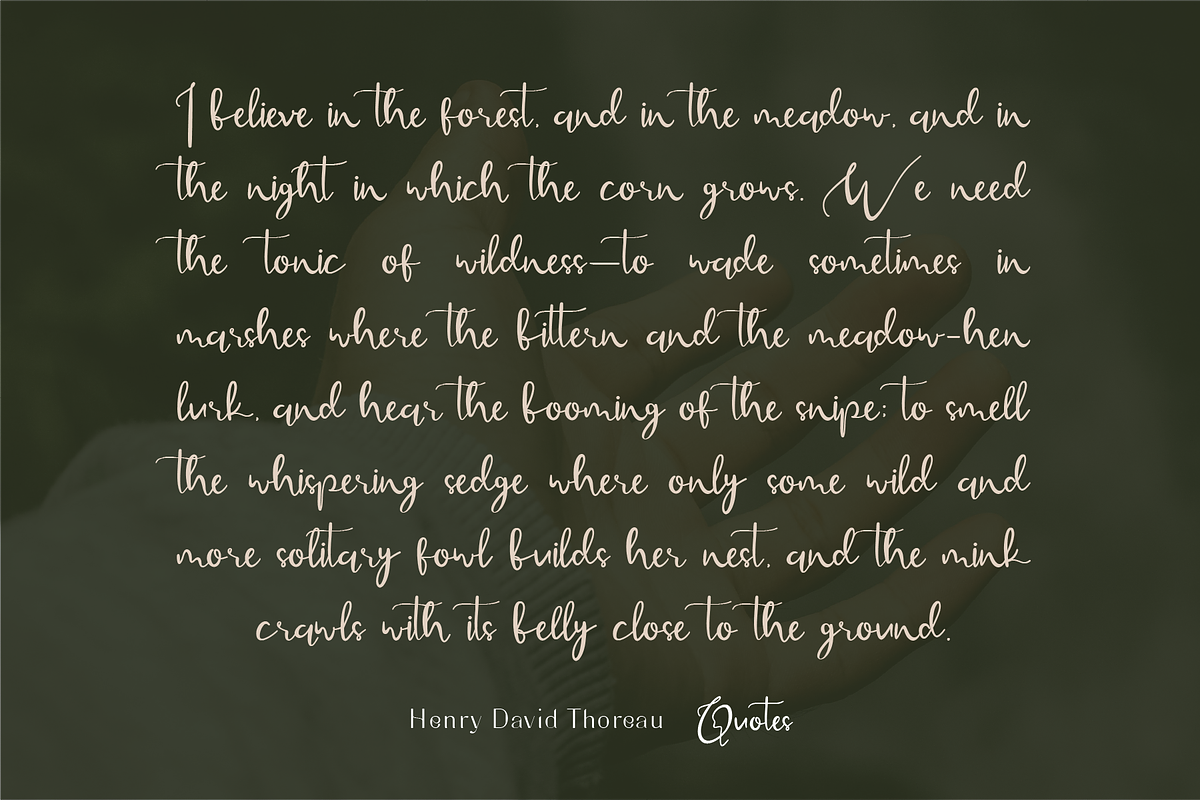 I believe in the forest, and in the meadow, and in
the night in which the corn grows. We need
the tonic of wildness—to wade sometimes in
marshes where the bittern and the meadow-hen
lurk, and hear the booming of the snipe; to smell
the whispering sedge where only some wild and
more solitary fowl builds her nest, and the mink
crawls with its belly close to the ground.
Henry David Thoreau Quotes